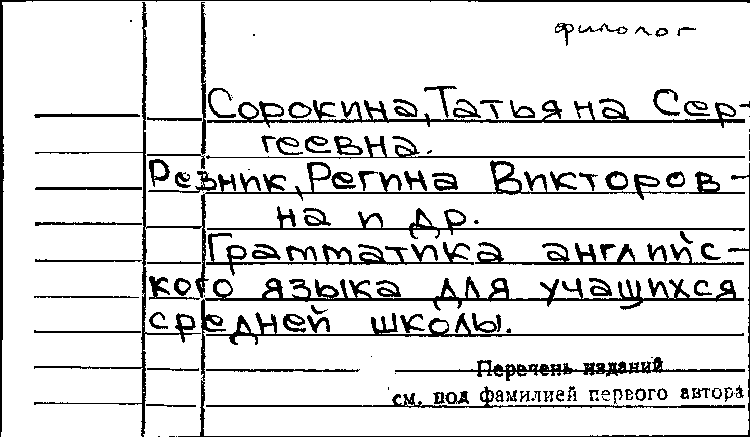 филолог
Сорокина, Татьяна Сер-
геевна.
Резник, Регина Викторов-
на и др.
Грамматика английс-
кого языка для учащихся
средней школы.
Перечень изданий
см. под фамилией первого автора